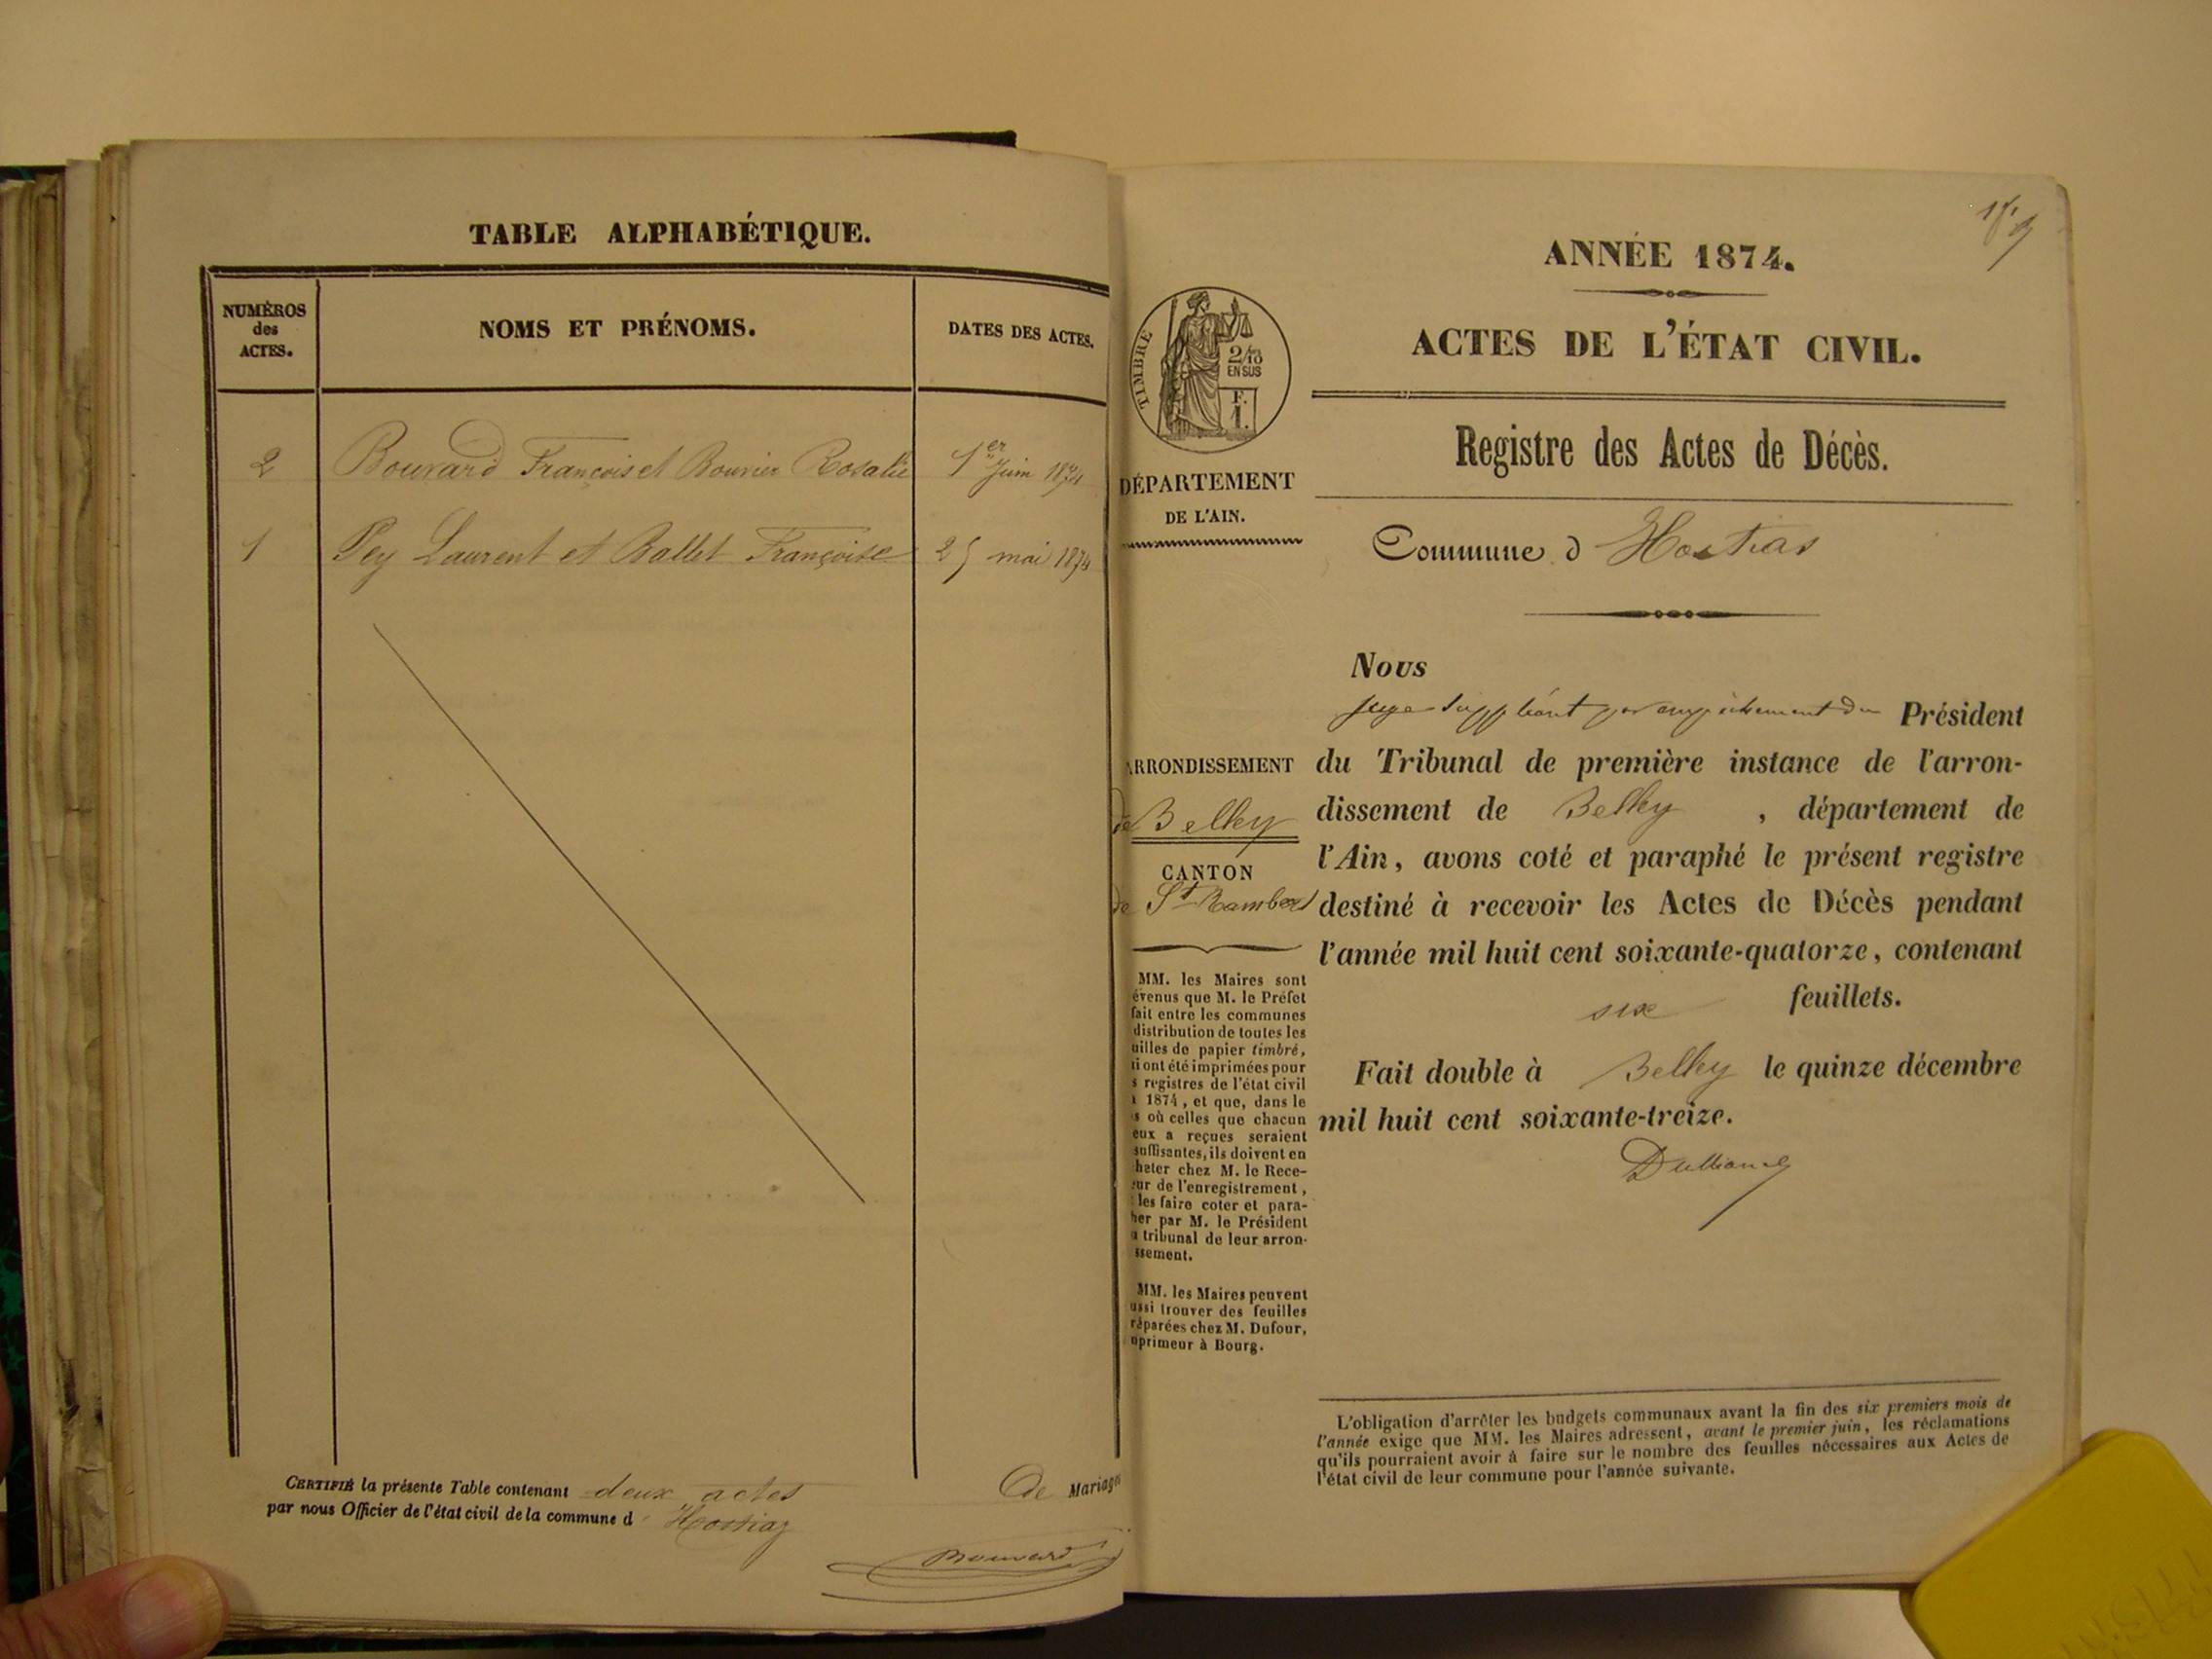 TABLE ALPHABÉTIQUE.
NUMÉROS des ACTES.
NOMS ET PRÉNOMS.
DATES DES ACTES.
2 Bouvard François et Bouvier Rosalie 1er Juin 1874
1 Pey Laurent et Ballet Françoise 25 mai 1874
CERTIFIÉ la présente Table contenant deux actes De Mariages
par nous Officier de l'état civil de la commune d' Hostiaz
Bouvard
ANNÉE 1874.
ACTES DE L'ÉTAT CIVIL.
Registre des Actes de Décès.
Commune d Hostias
TIMBRE
2/10
EN SUS
F.
1.
DÉPARTEMENT
DE L'AIN.
ARRONDISSEMENT
de Belley
CANTON
de St Rambert
MM. les Maires sont
évenus que M. le Préfet
fait entre les communes
distribution de toutes les
uilles de papier timbré,
ti ont été imprimées pour
s registres de l'état civil
1874, et que, dans le
s où celles que chacun
eux a reçues seraient
suffisantes, ils doivent en
heter chez M. le Rece-
eur de l'enregistrement,
les faire coter et para-
her par M. le Président
u tribunal de leur arron-
ssement.
MM. les Maires peuvent
ussi trouver des feuilles
réparées chez M. Dufour,
mprimeur à Bourg.
Nous
juge suppléant par empêchement du Président
du Tribunal de première instance de l'arron-
dissement de Belley , département de
l'Ain, avons coté et paraphé le présent registre
destiné à recevoir les Actes de Décès pendant
l'année mil huit cent soixante-quatorze, contenant
six feuillets.
Fait double à Belley le quinze décembre
mil huit cent soixante-treize.
L'obligation d'arrêter les budgets communaux avant la fin des six premiers mois de
l'année exige que MM. les Maires adressent, avant le premier juin, les réclamations
qu'ils pourraient avoir à faire sur le nombre des feuilles nécessaires aux Actes de
l'état civil de leur commune pour l'année suivante.